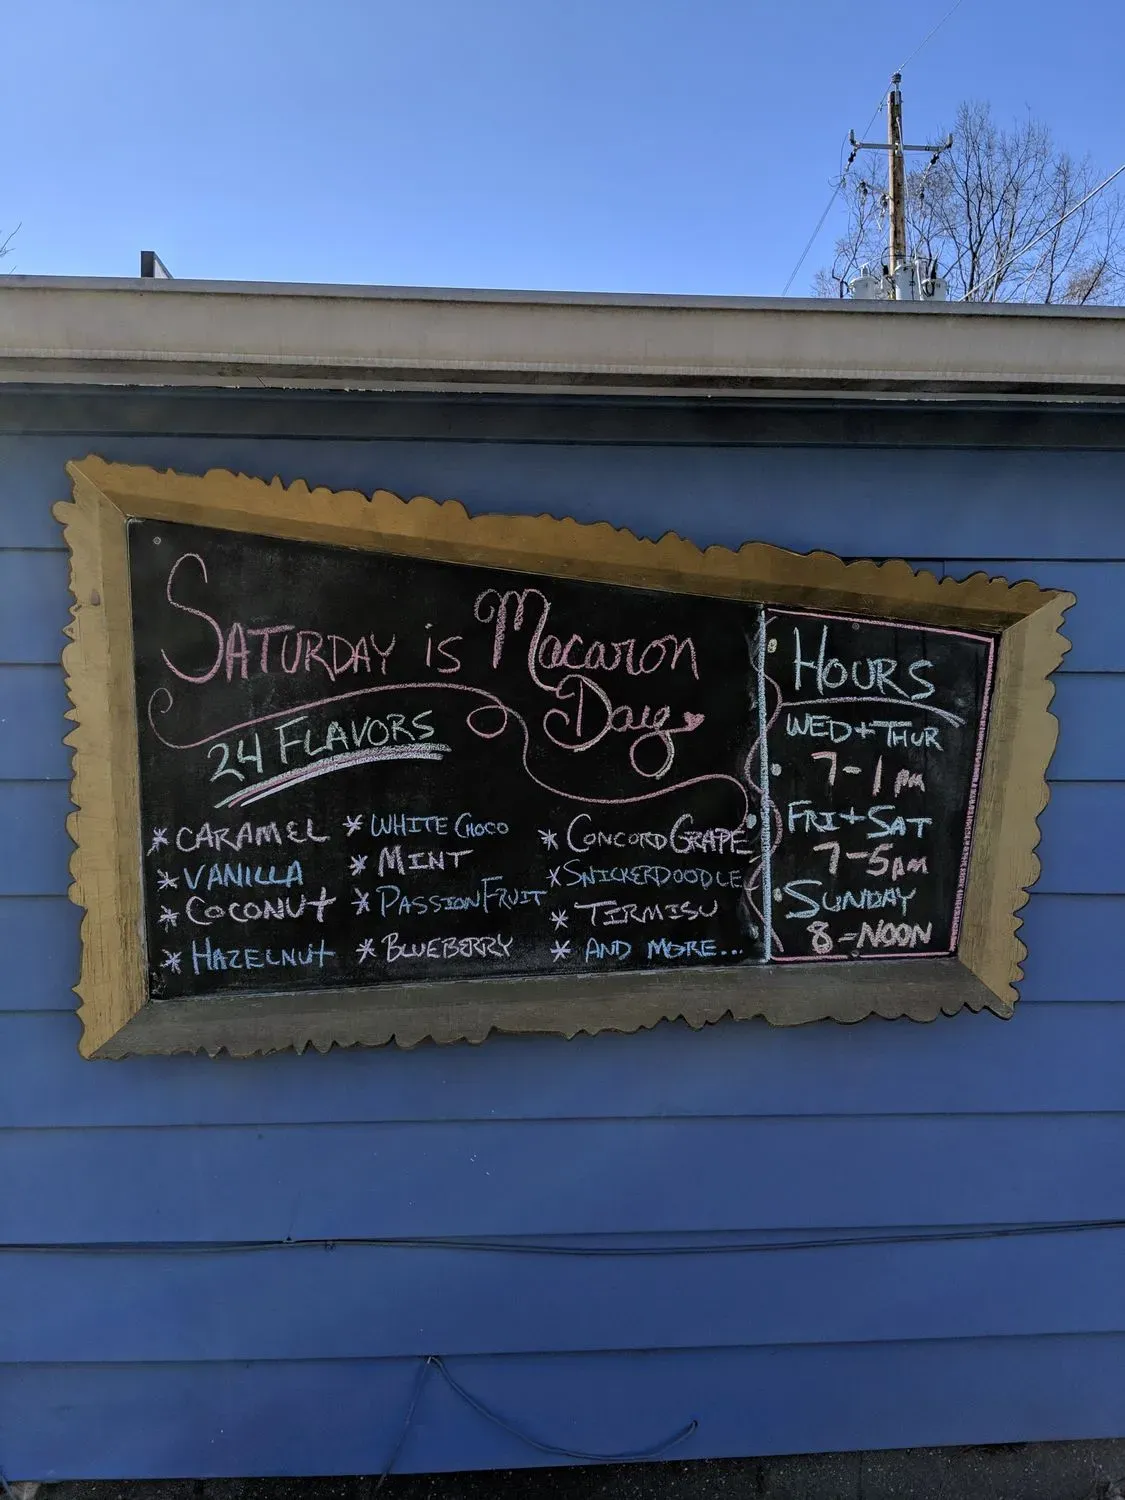 SATURDAY is Macaron
Day
24 FLAVORS
* CARAMEL
* VANILLA
* COCONUT
* HAZELNUT
* WHITE CHOCO
* MINT
* PASSIONFRUIT
* BLUEBERRY
* CONCORD GRAPE
* SNICKERDOODLE
* TIRMISU
* AND MORE...
HOURS
WED + THUR
7-1 pm
FRI + SAT
7-5pm
SUNDAY
8-NOON